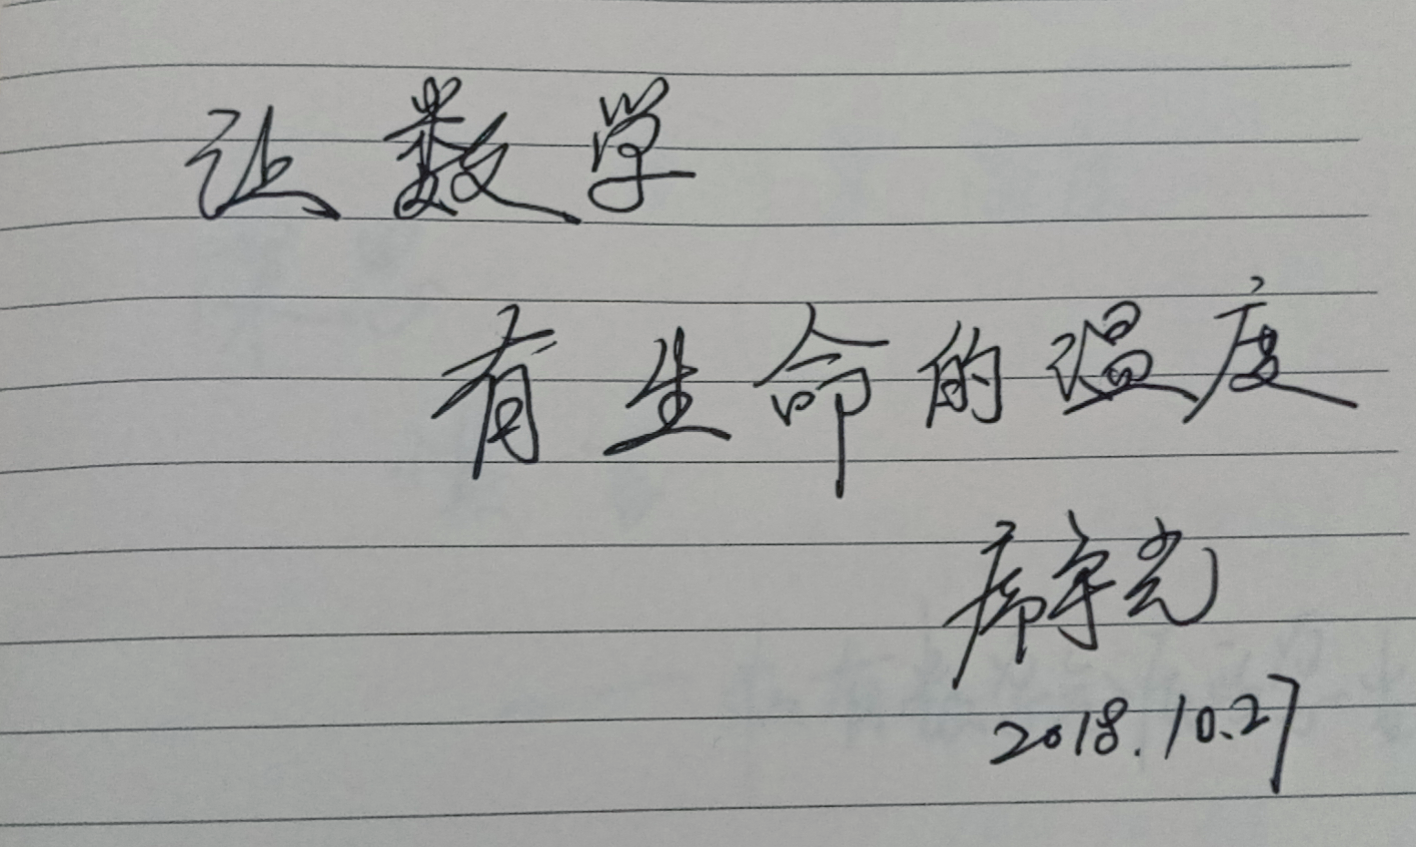 让数学
有生命的温度
席争光
2018.10.27